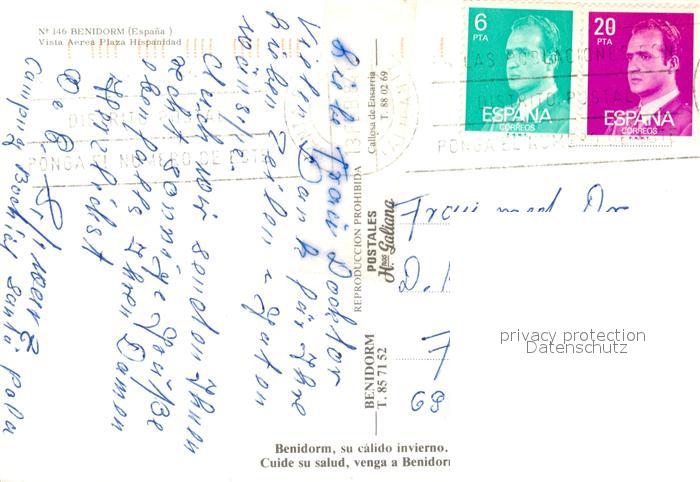 Nº 146 BENIDORM (España)
Vista Aerea Plaza Hispanidad
6
PTA
ESPAÑA
CORREOS
F.N.M.T.
20
PTA
ESPAÑA
CORREOS
F.N.M.T.
LAS POBLACIONES
DISTRITO POSTAL
PONGA EL NUMERO DE ESTE
DISTRITO POSTAL
PONGA EL NUMERO
Callosa de Ensarria
T. 88 02 69
REPRODUCCION PROHIBIDA
POSTALES
Hnos Galiana
BENIDORM
T. 85 71 52
Liebe Frau Dockter
Vielen Dank für Ihre
lieben Zeilen u. guten
Wünsche.
Auch wir senden Ihnen
recht sonnige Grüße
ebenfals Ihren Damen
Herzlichst
Camping Bachid Santa pola
Frau
D.
F
69
privacy protection
Datenschutz
Benidorm, su cálido invierno.
Cuide su salud, venga a Benidorm